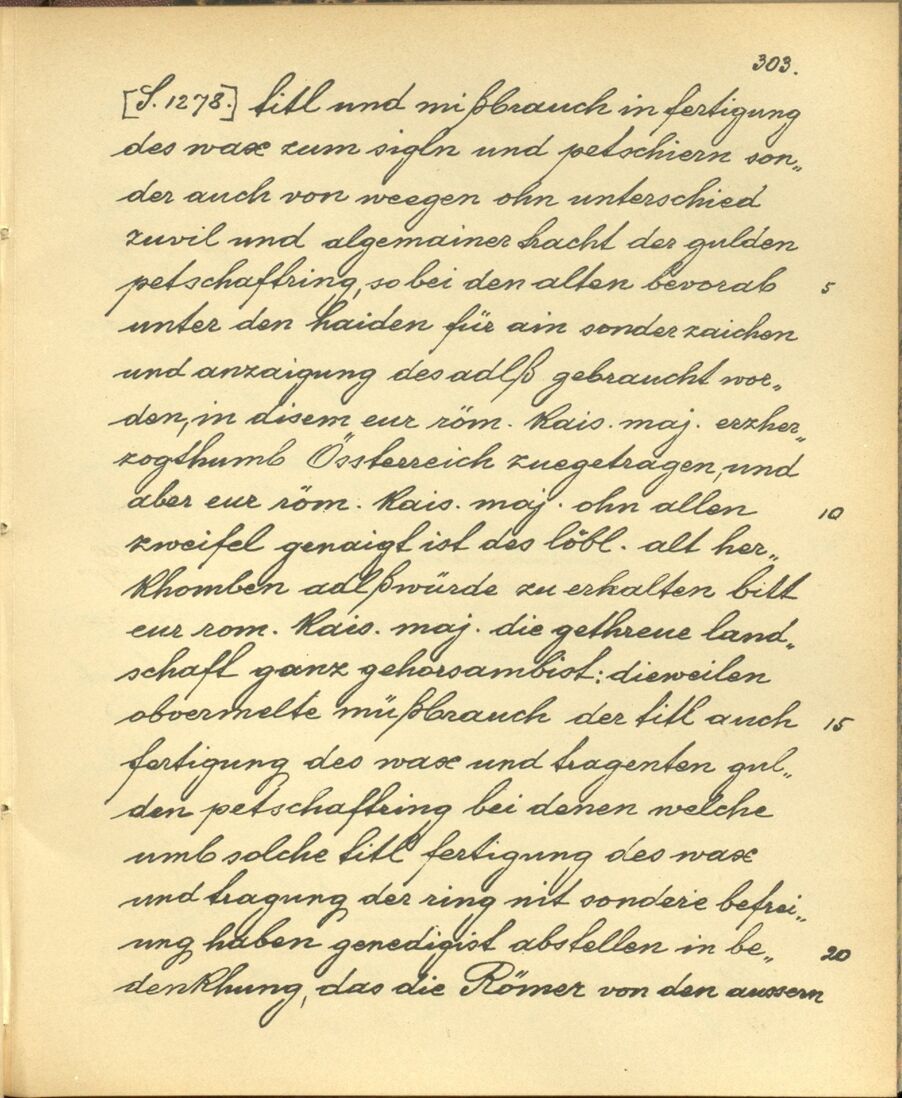 303.
[S. 1278.] titl und mißbrauch in fertigung
des wax zum sigln und petschiern son„
der auch von weegen ohn unterschied
zuvil und algemainer tracht der gulden
petschaftring, so bei den alten bevorab 5
unter den haiden für ain sonder zaichen
und anzaigung des adlß gebraucht wor„
den, in disem eur röm. Kais. maj. erzher„
zogthumb Össterreich zuegetragen, und
aber eur röm. Kais. maj. ohn allen 10
zweifel genaigt ist des löbl. alt her„
khomben adlßwürde zu erhalten bitt
eur rom. Kais. maj. die gethreue land„
schaft ganz gehorsambist: dieweilen
obvermelte müßbrauch der titl auch 15
fertigung des wax und tragenten gul„
den petschaftring bei denen welche
umb solche titl fertigung des wax
und tragung der ring nit sondere befrei„
ung haben genedigist abstellen in be„ 20
denkhung, das die Römer von den aussern